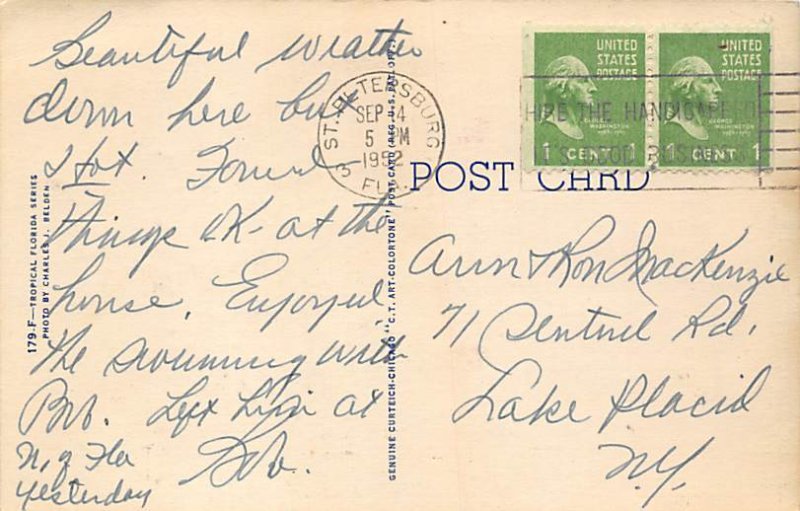 Beautiful weather
down here but
Hot. Found
things OK at the
house. Enjoyed
the swimming with
Bob. Left at
N, Fla
yesterday
Bob.
179-F—TROPICAL FLORIDA SERIES
PHOTO BY CHARLES J. BELDEN
GENUINE CURTEICH-CHICAGO "C.T. ART-COLORTONE" POST CARD (REG. U.S. PAT. OFF.)
ST. PETERSBURG
SEP 4
5 PM
1952
3 FLA.
POST CARD
UNITED
STATES
POSTAGE
GEORGE
WASHINGTON
1 CENT 1
UNITED
STATES
POSTAGE
GEORGE
WASHINGTON
1 CENT 1
HIRE THE HANDICAPPED
IT'S GOOD BUSINESS
Ann & Ron MacKenzie
71 Sentinel Rd.
Lake Placid
N.Y.